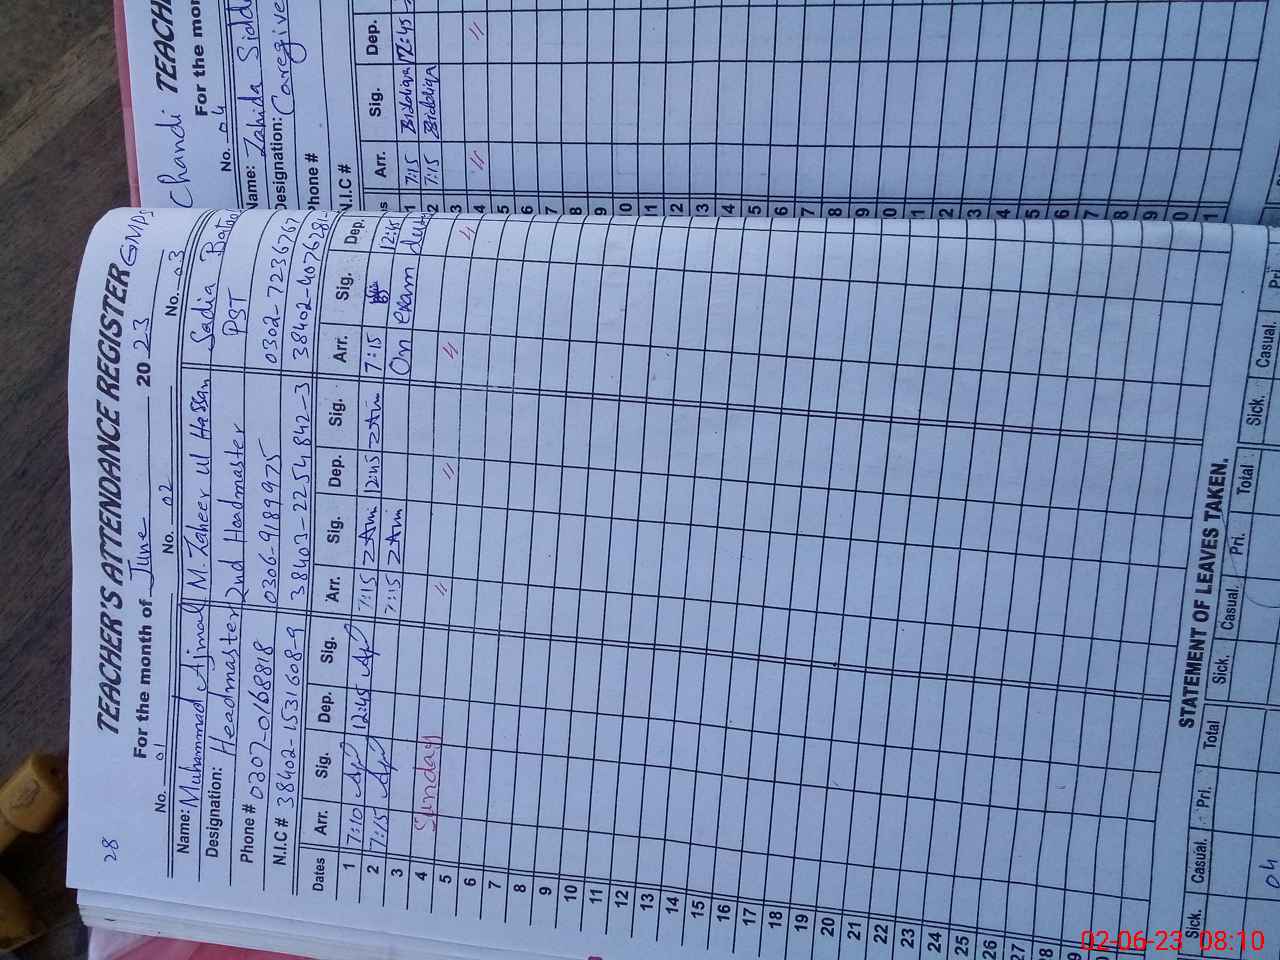 28
TEACHER'S ATTENDANCE REGISTER GMPS
For the month of June 2023
No. 01 No. 02 No. 03
Name: Muhammad Ajmal M. Zaheer ul Hassan Sadia
Designation: Headmaster 2nd Headmaster PST
Phone # 0307-0168818 0306-9189975 0302-7236767
N.I.C # 38402-1531608-9 38403-2254842-3 38402-4076281-
Dates Arr. Sig. Dep. Sig. Arr. Sig. Dep. Sig. Arr. Sig. Dep.
1 7:10 12:45 7:15 12:45 7:15 12:45
2 7:15 7:15 On exam duty
3
4 Sunday 〃 〃 〃 〃
5
6
7
8
9
10
11
12
13
14
15
16
17
18
19
20
21
22
23
24
25
26
27
28
STATEMENT OF LEAVES TAKEN.
Sick. Casual. Pri. Total Sick. Casual. Pri. Total Sick. Casual. Pri
04
Chandi TEACH
For the mon
No. 04
Name: Zahida Siddi
Designation: Caregive
Phone #
N.I.C #
s Arr. Sig. Dep.
1 7:15 Siddiqa 12:45
2 7:15 Siddiqa
3
4 〃 〃
5
6
7
8
9
0
1
2
3
4
5
6
7
8
9
0
1
2
3
4
5
6
7
8
9
0
1
02-06-23 08:10